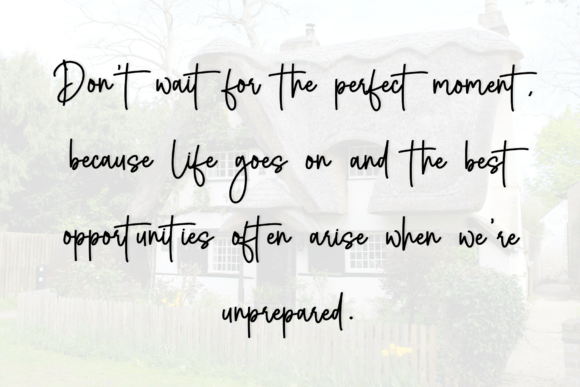 Don't wait for the perfect moment,
because life goes on and the best
opportunities often arise when we're
unprepared.